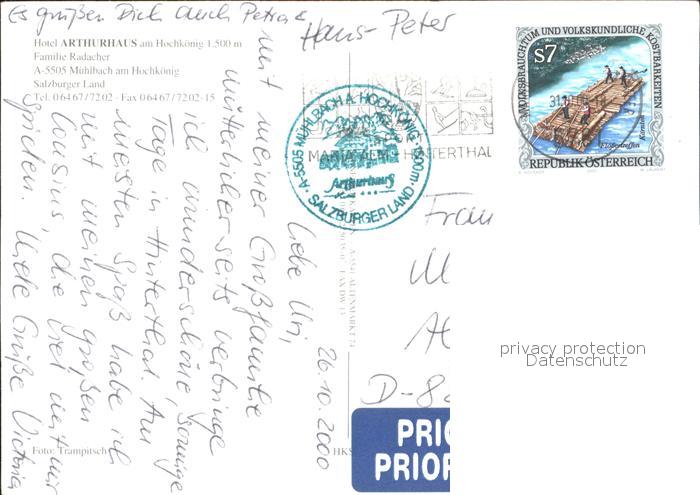 Es grüßen Dich auch Petra &
Hans-Peter
Hotel ARTHURHAUS am Hochkönig 1.500 m
Familie Radacher
A-5505 Mühlbach am Hochkönig
Salzburger Land
Tel. 06467/7202 - Fax 06467/7202-15
26.10.2000
Liebe Uri,
mit meiner Großfamilie
mütterlicherseits verbringe
ich wunderschöne, sonnige
Tage in Hinterthal. Am
meisten Spaß habe ich
mit meinen großen
Cousins, die viel mit mir
spielen. Viele Grüße Victoria
Foto: Trampitsch
A-5505 MÜHLBACH A. HOCHKÖNIG · 1500m ·
Arthurhaus
SALZBURGER LAND
MARIA ALM HINTERTHAL
VOLKSBRAUCHTUM UND VOLKSKUNDLICHE KOSTBARKEITEN
S7
Flößertreffen
Kärnten
REPUBLIK ÖSTERREICH
Frau
M
A
D-8
PRIO
PRIOR
HKS
privacy protection
Datenschutz